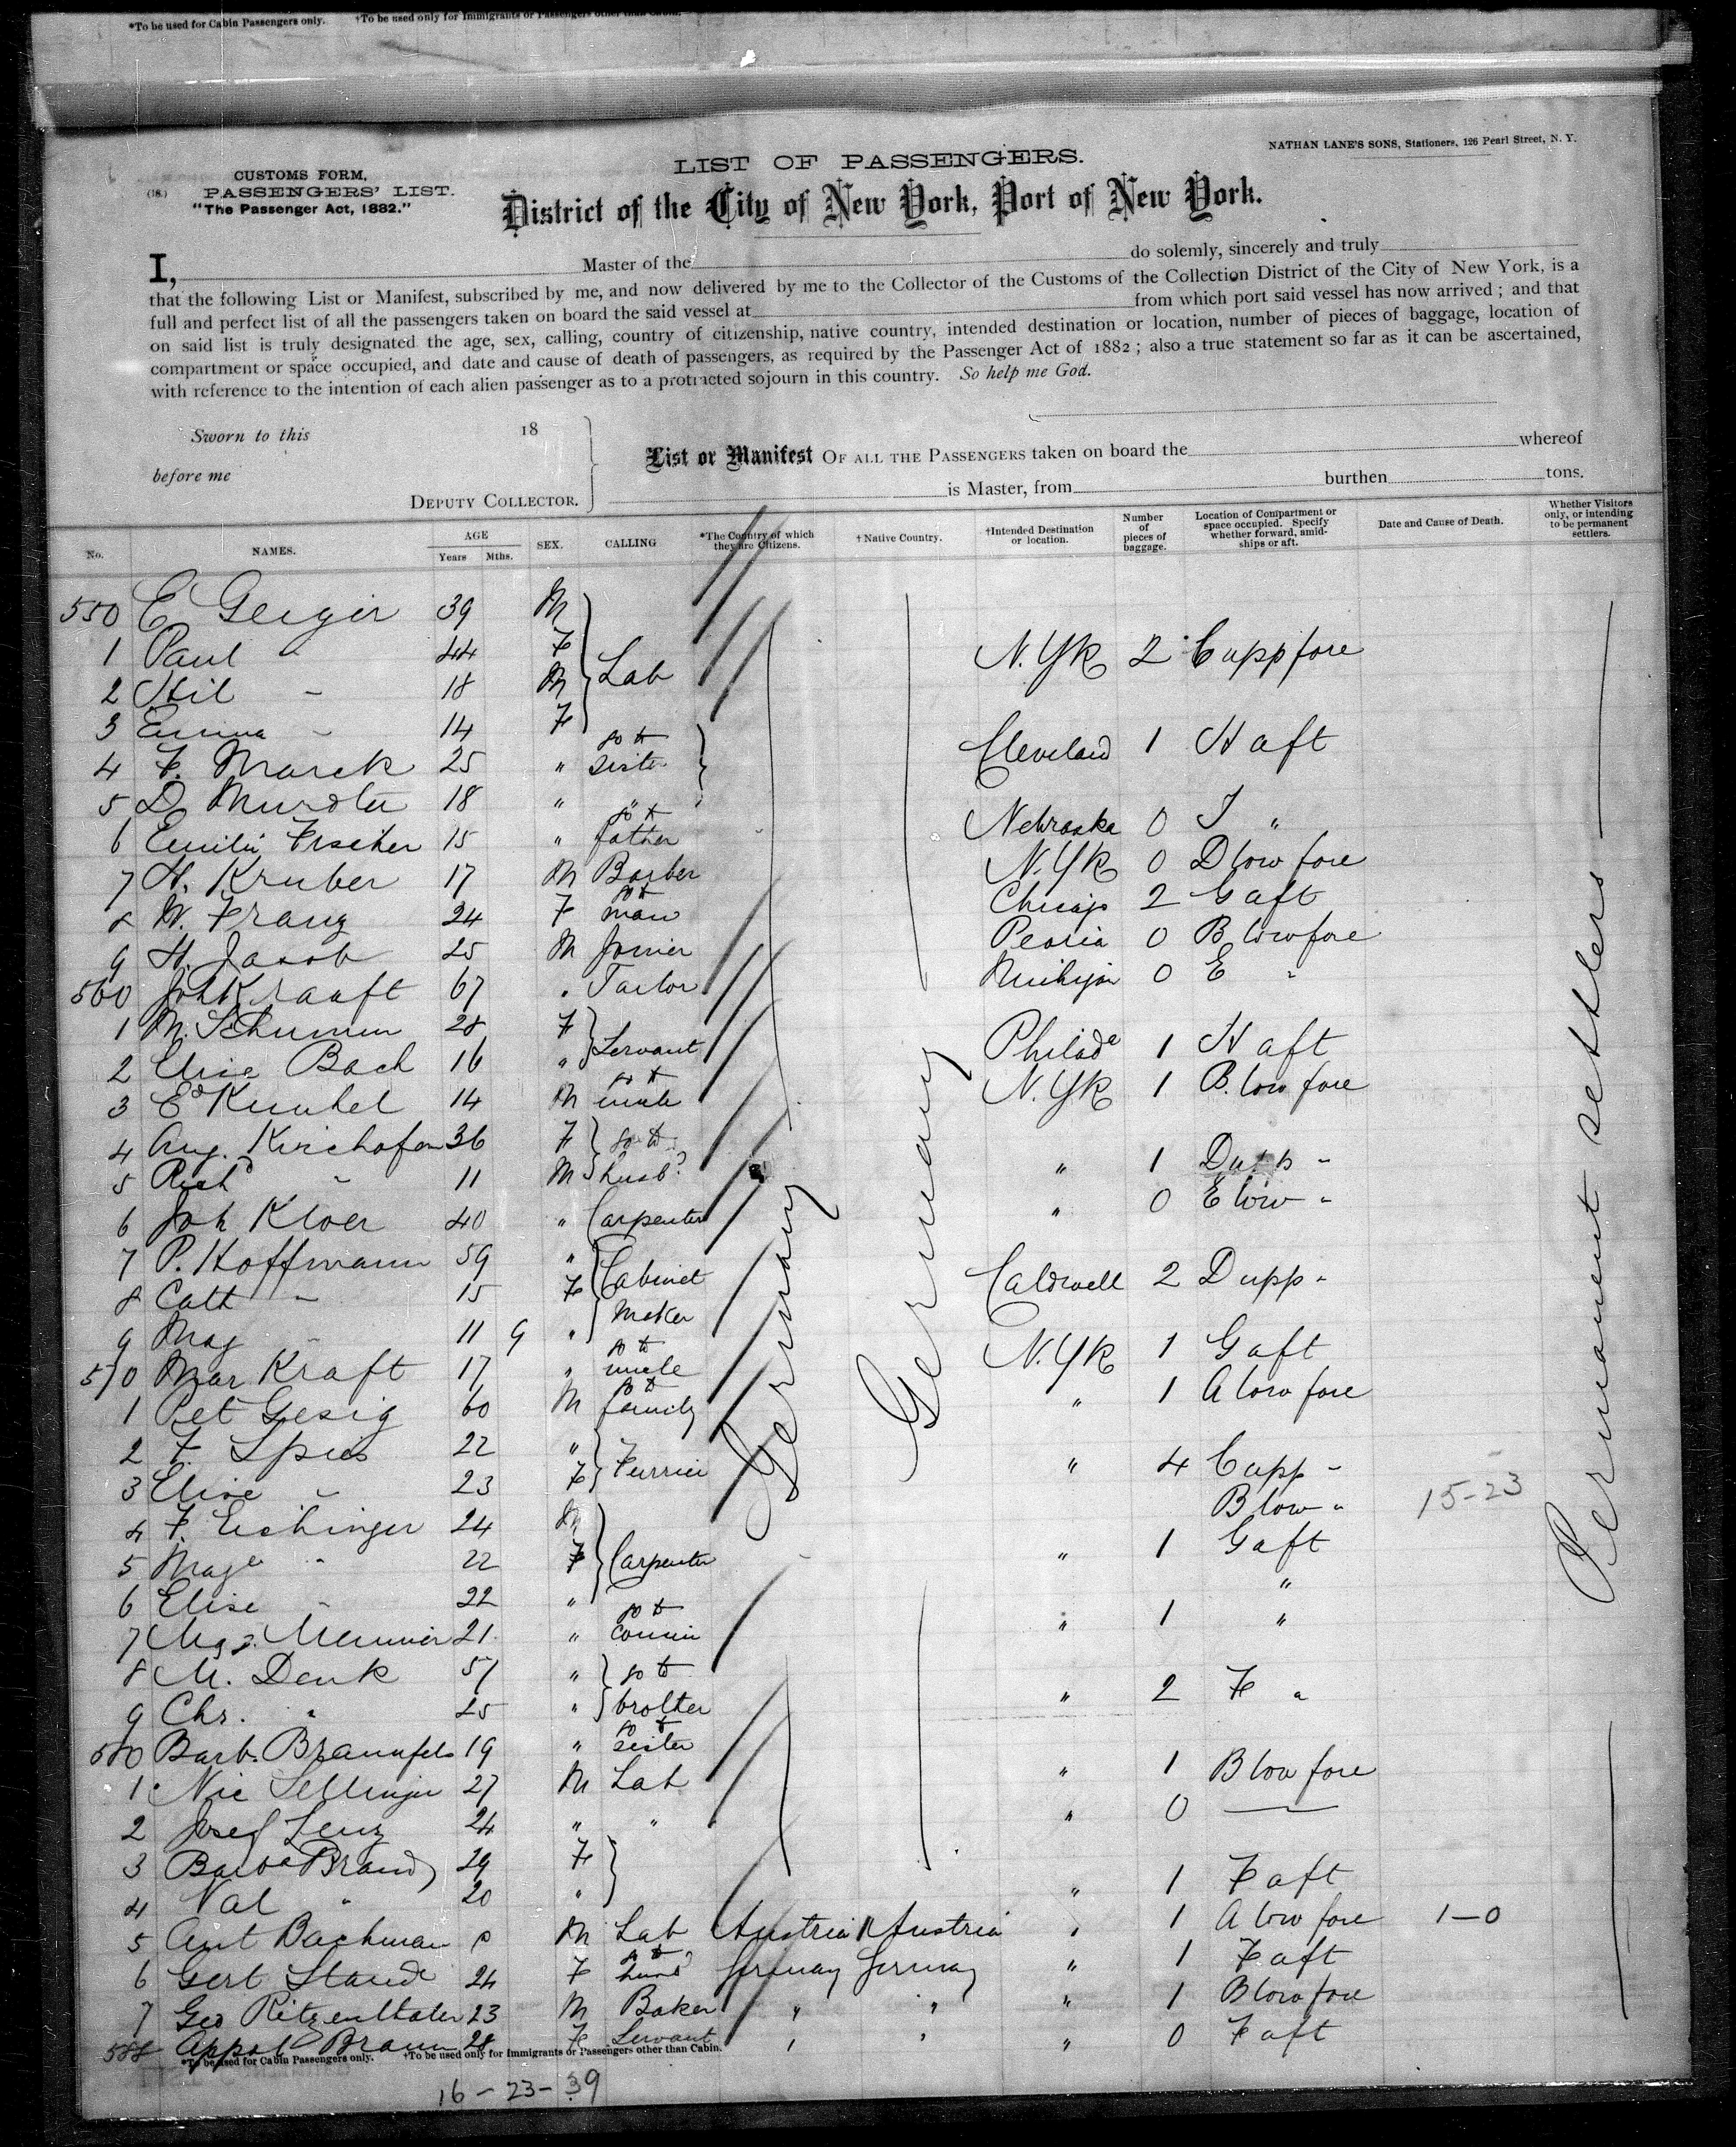 *To be used for Cabin Passengers only. †To be used only for Immigrants or Passengers other than Cabin.
NATHAN LANE'S SONS, Stationers, 126 Pearl Street, N. Y.
LIST OF PASSENGERS.
CUSTOMS FORM,
(18.) PASSENGERS' LIST.
"The Passenger Act, 1882."
District of the City of New York, Port of New York.
I, Master of the do solemnly, sincerely and truly
that the following List or Manifest, subscribed by me, and now delivered by me to the Collector of the Customs of the Collection District of the City of New York, is a
full and perfect list of all the passengers taken on board the said vessel at from which port said vessel has now arrived; and that
on said list is truly designated the age, sex, calling, country of citizenship, native country, intended destination or location, number of pieces of baggage, location of
compartment or space occupied, and date and cause of death of passengers, as required by the Passenger Act of 1882; also a true statement so far as it can be ascertained,
with reference to the intention of each alien passenger as to a protracted sojourn in this country. So help me God.
Sworn to this 18
before me
DEPUTY COLLECTOR.
List or Manifest OF ALL THE PASSENGERS taken on board the whereof
is Master, from burthen tons.
No. NAMES. AGE Years Mths. SEX. CALLING *The Country of which they are Citizens. †Native Country. †Intended Destination or location. Number of pieces of baggage. Location of Compartment or space occupied. Specify whether forward, amidships or aft. Date and Cause of Death. Whether Visitors only, or intending to be permanent settlers.
550 E Geiger 39 M
1 Paul " 44 F Lab N.Yk 2 C upp fore
2 Hil " 18 M
3 Emma " 14 F
4 F. Marck 25 " to sister Cleveland 1 H aft
5 D Murdter 18 " "
6 Emilie Fischer 15 " to father Nebraska 0 J "
7 H. Kruber 17 M Barber N.Yk 0 D low fore
8 W. Franz 24 F to man Chicago 2 G aft
9 H. Jacob 25 M Joiner Peoria 0 B low fore
560 Joh Kraaft 67 " Tailor Michigan 0 E "
1 M. Schumm 28 F Servant Philade 1 H aft
2 Elise Bach 16 "
3 Ed Kunkel 14 M to uncle N.Yk 1 B. low fore
4 Aug. Kirchofen 36 F to husbd
5 Richd " 11 M " 1 D upp "
6 Joh Kloer 40 " Carpenter " 0 E low "
7 P. Hoffmann 59 " Cabinet Maker
8 Cath " 15 F Caldwell 2 D upp "
9 Mag " 11 9 "
570 Mar Kraft 17 " to uncle N.Yk 1 G aft
1 Pet Gesig 60 M to family " 1 A low fore
2 F. Spies 22 " Furrier
3 Elise " 23 F " 4 C upp "
4 F. Eichinger 24 M B low " 15-23
5 Mage " 22 F Carpenter " 1 G aft
6 Elise " 22 " "
7 Mag. Meunier 21 " to cousin " 1 "
8 M. Denk 57 " to brother
9 Chr. " 25 " " 2 F "
580 Barb. Braunfels 19 " to sister
1 Nic Sellinger 27 M Lab " 1 B low fore
2 Josef Lenz 24 " " " 0
3 Barba Brandy 29 F
4 Val " 20 " " 1 F aft
5 Ant Bachman M Lab Austria Austria " 1 A low fore 1-0
6 Gert Staude 24 F to husbd Germany Germany " 1 F aft
7 Geo Ritzenthaler 23 M Baker " " " 1 B low fore
588 Appol Braun 28 F Servant " " " 0 F aft
Germany
Germany
Permanent settlers
*To be used for Cabin Passengers only. †To be used only for Immigrants or Passengers other than Cabin.
16-23-39